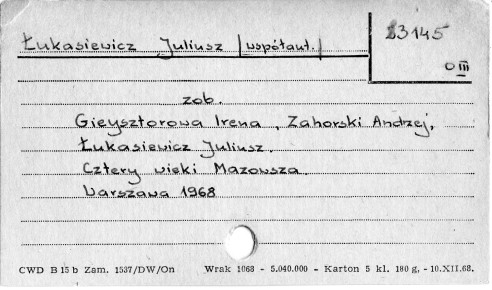 Łukasiewicz Juliusz /współaut./
23145
O III
zob.
Gieysztorowa Irena, Zahorski Andrzej,
Łukasiewicz Juliusz.
Cztery wieki Mazowsza.
Warszawa 1968
CWD B 15 b Zam. 1537/DW/On Wrak 1068 - 5.040.000 - Karton 5 kl. 180 g, - 10.XII.68.